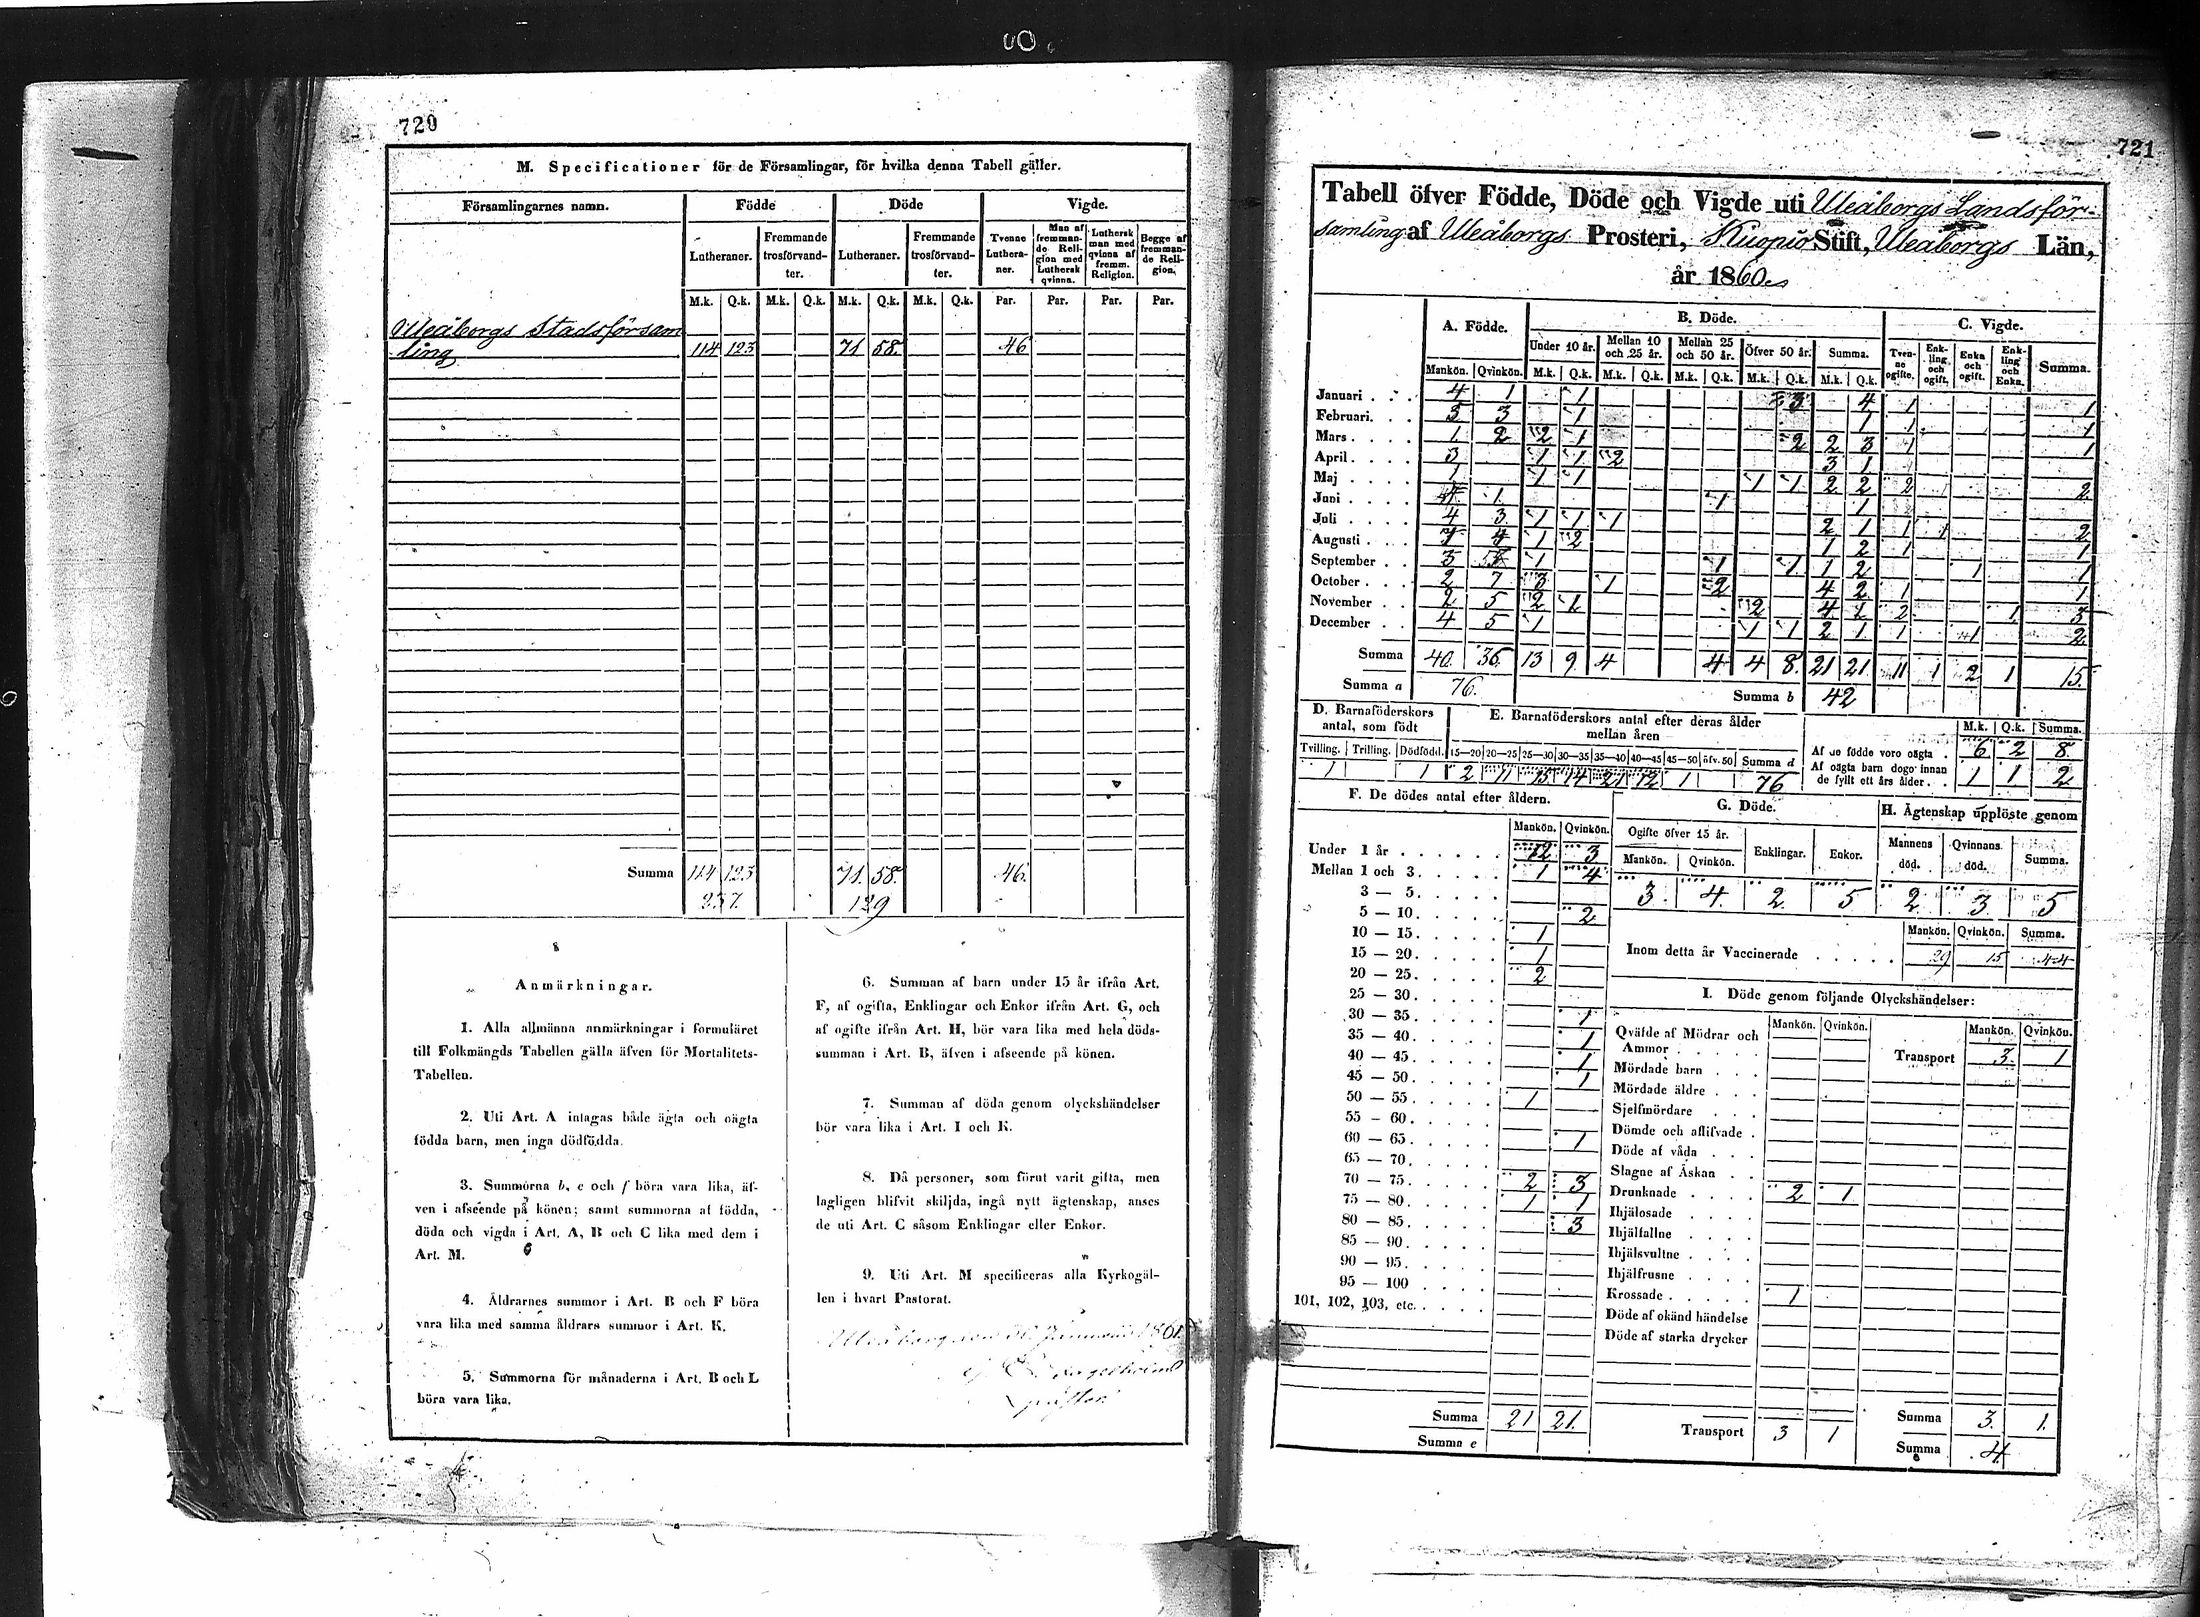 720
M. Specificationer för de Församlingar, för hvilka denna Tabell gäller.
Församlingarnes namn. Födde Döde Vigde.
Lutheraner. Fremmande trosförvandter. Lutheraner. Fremmande trosförvandter. Tvenne Lutheraner. Man af fremmande Religion med Luthersk qvinna. Luthersk man med qvinna af fremm. Religion. Begge af fremmande Religion.
M.k. Q.k. M.k. Q.k. M.k. Q.k. M.k. Q.k. Par. Par. Par. Par.
Uleåborgs Stadsförsam
ling 114 123 71 58. 46
Summa 114 123 71. 58. 46.
237. 129
Anmärkningar.
1. Alla allmänna anmärkningar i formuläret
till Folkmängds Tabellen gälla äfven för Mortalitets-
Tabellen.
2. Uti Art. A intagas både ägta och oägta
födda barn, men inga dödfödda.
3. Summorna b, e och f böra vara lika, äf-
ven i afseende på könen; samt summorna af födda,
döda och vigda i Art. A, B och C lika med dem i
Art. M.
4. Åldrarnes summor i Art. B och F böra
vara lika med samma åldrars summor i Art. K.
5. Summorna för månaderna i Art. B och L
böra vara lika.
6. Summan af barn under 15 år ifrån Art.
F, af ogifta, Enklingar och Enkor ifrån Art. G, och
af ogifte ifrån Art. H, bör vara lika med hela döds-
summan i Art. B, äfven i afseende på könen.
7. Summan af döda genom olyckshändelser
bör vara lika i Art. I och K.
8. Då personer, som förut varit gifta, men
lagligen blifvit skiljda, ingå nytt ägtenskap, anses
de uti Art. C såsom Enklingar eller Enkor.
9. Uti Art. M specificeras alla Kyrkogäl-
len i hvart Pastorat.
Januari 1861.
721
Tabell öfver Födde, Döde och Vigde uti Uleåborgs Landsför-
samling af Uleåborgs Prosteri, Kuopio Stift, Uleåborgs Län,
år 1860
A. Födde. B. Döde. C. Vigde.
Under 10 år. Mellan 10 och 25 år. Mellan 25 och 50 år. Öfver 50 år. Summa. Tvenne ogifte. Enkling och ogift. Enka och ogift. Enkling och Enka. Summa.
Mankön. Qvinkön. M.k. Q.k. M.k. Q.k. M.k. Q.k. M.k. Q.k. M.k. Q.k.
Januari 4 1 1 3 4 1 1
Februari. 5 3 1 1 1 1
Mars 1 2 2 1 2 2 3 1 1
April 3 1 1 2 3 1
Maj 1 1 1 1 1 2 2 2 2
Juni 1 1 1
Juli 4 3 1 1 1 2 1 1 1 2
Augusti 4 1 2 1 2 1 1
September 3 1 1 1 1 2 1 1
October 2 7 3 1 2 4 2 1 1
November 2 5 2 1 2 4 1 2 1 3
December 4 5 1 1 1 2 1 1 1 2
Summa 40. 36. 13 9 4 4 4 8 21 21 11 1 2 1 15.
Summa a 76. Summa b 42
D. Barnaföderskors antal, som födt
E. Barnaföderskors antal efter deras ålder mellan åren
M.k. Q.k. Summa.
Tvilling. Trilling. Dödfödd. 15—20 20—25 25—30 30—35 35—40 40—45 45—50 öfv. 50 Summa d
1 1 2 11 15 14 21 12 1 76
Af de födde voro oägta 6 2 8.
Af oägta barn dogo innan
de fyllt ett års ålder 1 1 2
F. De dödes antal efter åldern.
Mankön. Qvinkön.
Under 1 år 12 3
Mellan 1 och 3 1 4
3 — 5
5 — 10 2
10 — 15 1
15 — 20 1
20 — 25 2
25 — 30
30 — 35 1
35 — 40 1
40 — 45 1
45 — 50 1
50 — 55 1
55 — 60
60 — 65 1
65 — 70
70 — 75 2 3
75 — 80 1 1
80 — 85 3
85 — 90
90 — 95
95 — 100
101, 102, 103, etc.
Summa 21 21.
Summa e
G. Döde.
Ogifte öfver 15 år. Enklingar. Enkor.
Mankön. Qvinkön.
3. 4. 2. 5
H. Ägtenskap upplöste genom
Mannens död. Qvinnans död. Summa.
2. 3. 5
Mankön. Qvinkön. Summa.
Inom detta år Vaccinerade 29 15 44
I. Döde genom följande Olyckshändelser:
Mankön. Qvinkön. Mankön. Qvinkön.
Qväfde af Mödrar och
Ammor
Transport 3. 1
Mördade barn
Mördade äldre
Sjelfmördare
Dömde och aflifvade
Döde af våda
Slagne af Åskan
Drunknade 2 1
Ihjälosade
Ihjälfallne
Ihjälsvultne
Ihjälfrusne
Krossade 1
Döde af okänd händelse
Döde af starka drycker
Transport 3 1
Summa 3. 1.
Summa 4.